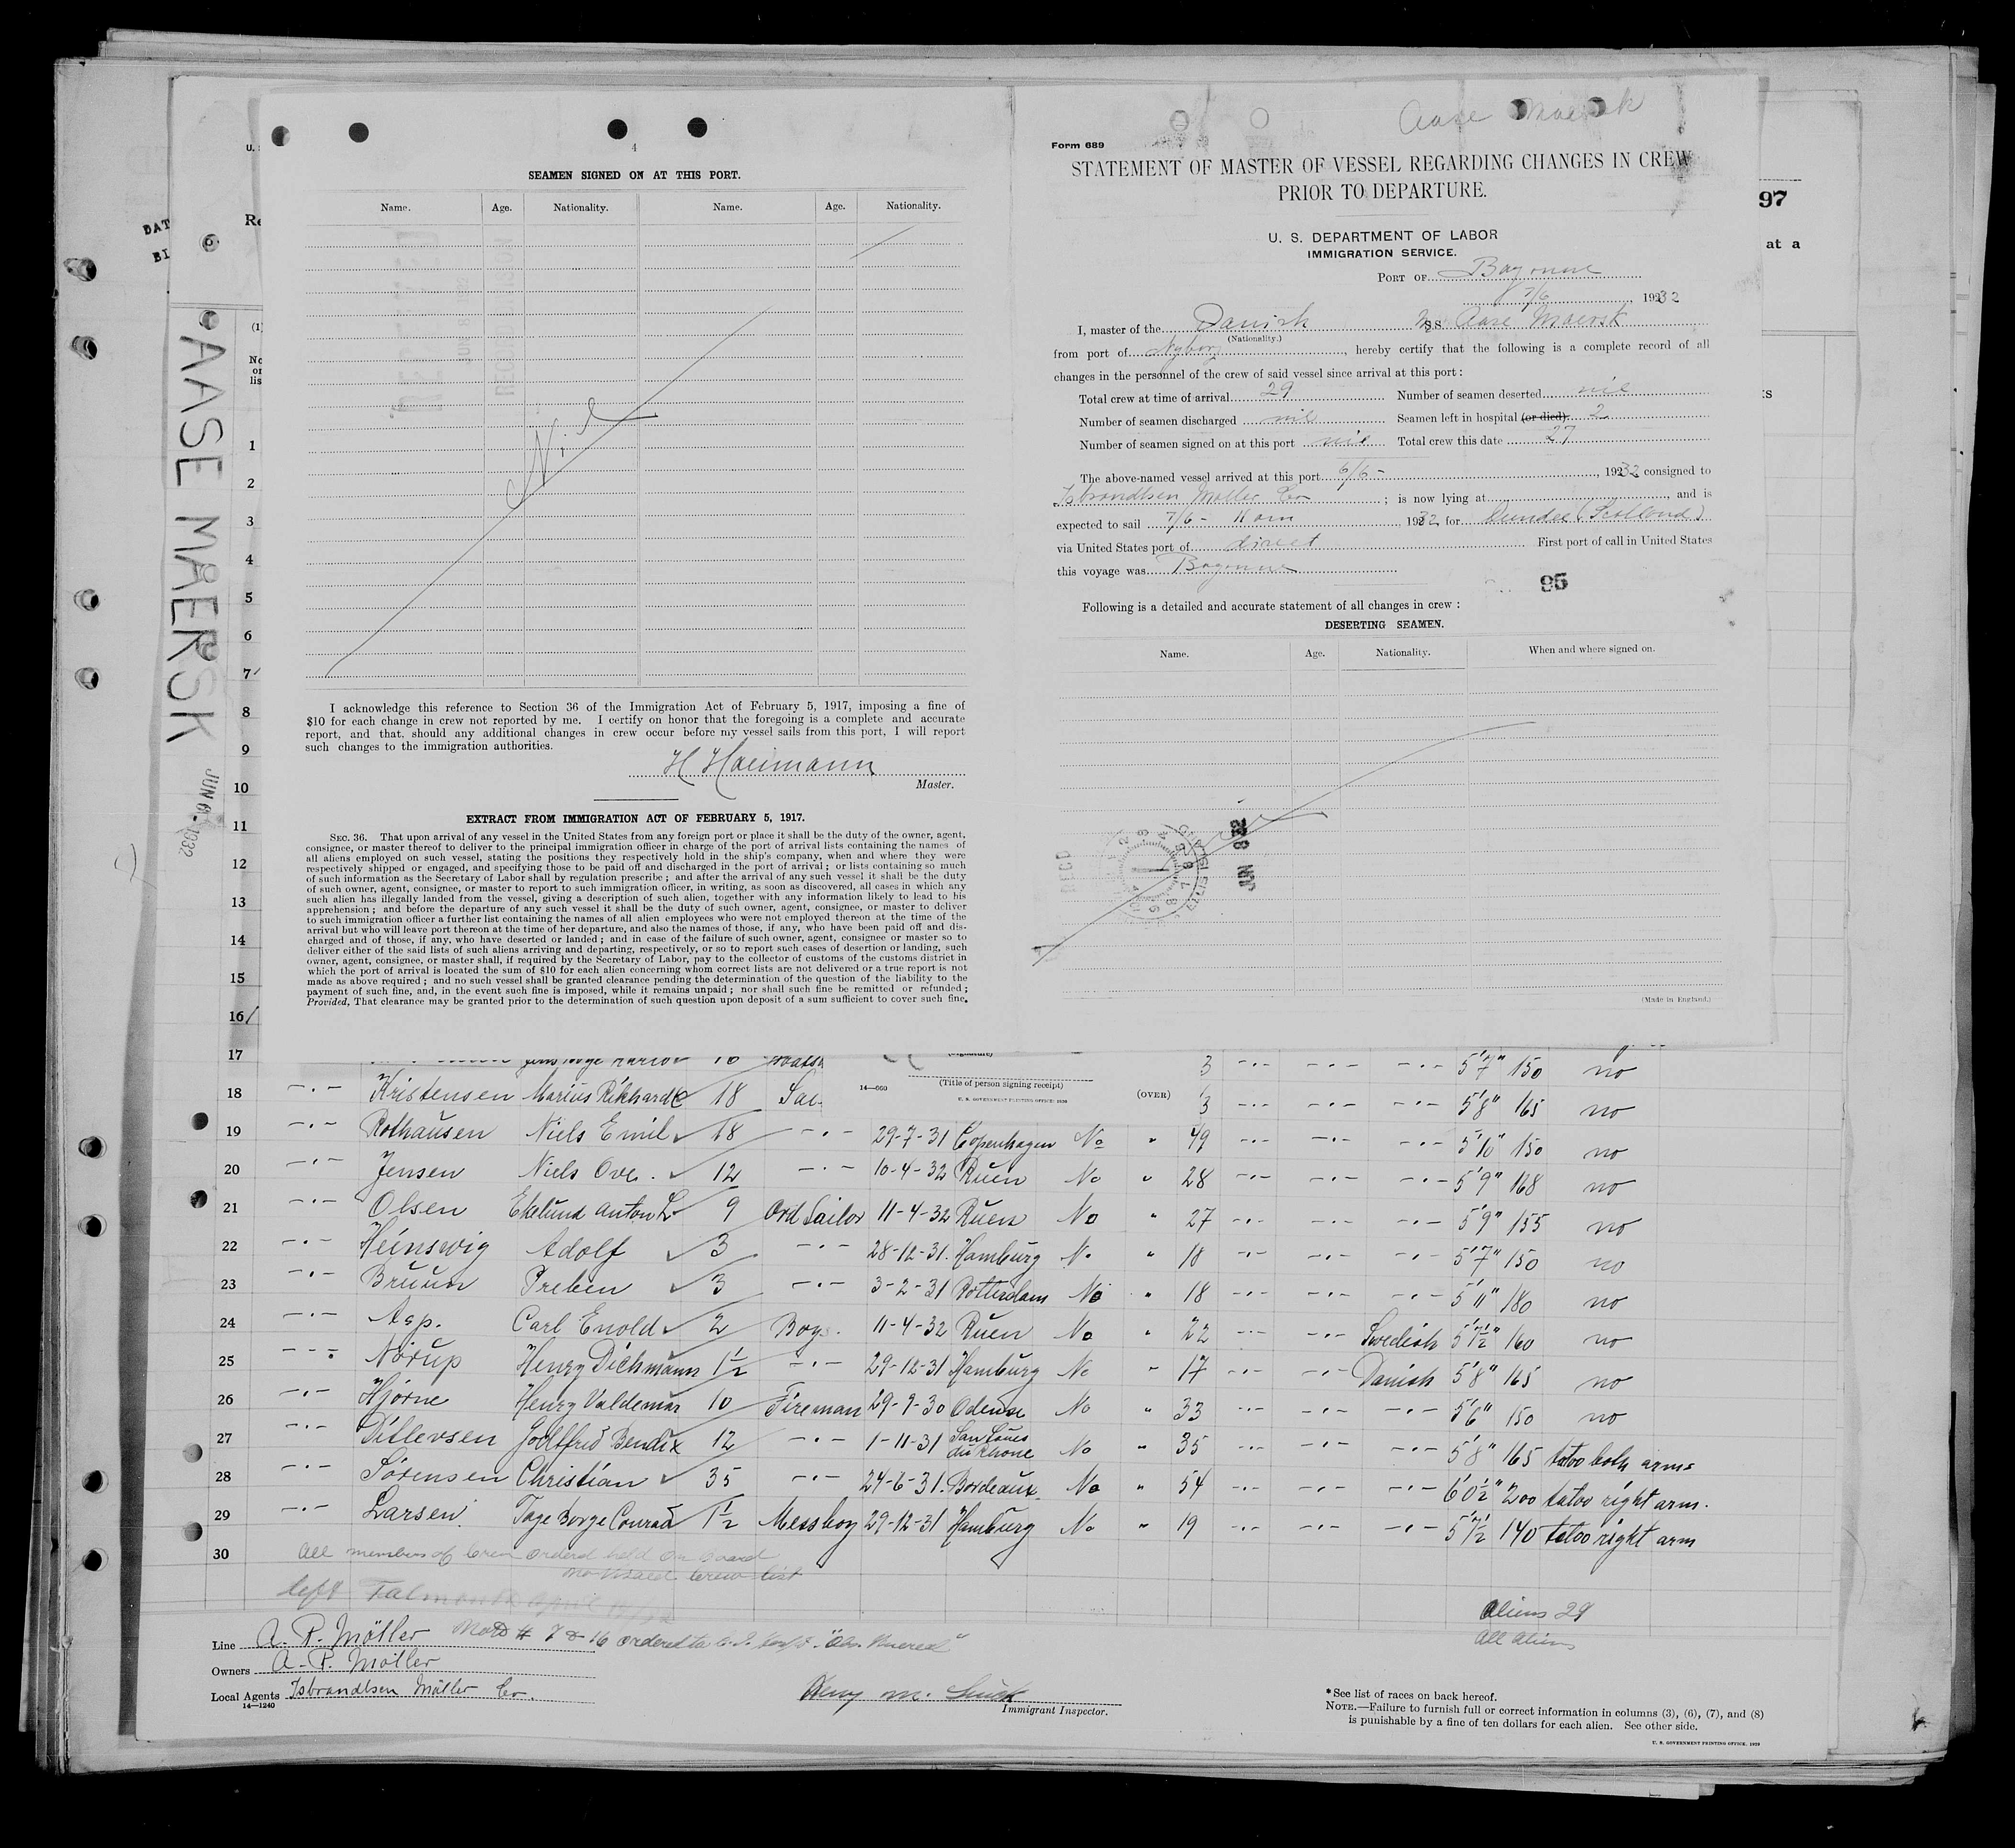 4
SEAMEN SIGNED ON AT THIS PORT.
Name. Age. Nationality. Name. Age. Nationality.
Nil
I acknowledge this reference to Section 36 of the Immigration Act of February 5, 1917, imposing a fine of
$10 for each change in crew not reported by me. I certify on honor that the foregoing is a complete and accurate
report, and that, should any additional changes in crew occur before my vessel sails from this port, I will report
such changes to the immigration authorities.
Master.
EXTRACT FROM IMMIGRATION ACT OF FEBRUARY 5, 1917.
SEC. 36. That upon arrival of any vessel in the United States from any foreign port or place it shall be the duty of the owner, agent,
consignee, or master thereof to deliver to the principal immigration officer in charge of the port of arrival lists containing the names of
all aliens employed on such vessel, stating the positions they respectively hold in the ship's company, when and where they were
respectively shipped or engaged, and specifying those to be paid off and discharged in the port of arrival; or lists containing so much
of such information as the Secretary of Labor shall by regulation prescribe; and after the arrival of any such vessel it shall be the duty
of such owner, agent, consignee, or master to report to such immigration officer, in writing, as soon as discovered, all cases in which any
such alien has illegally landed from the vessel, giving a description of such alien, together with any information likely to lead to his
apprehension; and before the departure of any such vessel it shall be the duty of such owner, agent, consignee, or master to deliver
to such immigration officer a further list containing the names of all alien employees who were not employed thereon at the time of the
arrival but who will leave port thereon at the time of her departure, and also the names of those, if any, who have been paid off and dis-
charged and of those, if any, who have deserted or landed; and in case of the failure of such owner, agent, consignee or master so to
deliver either of the said lists of such aliens arriving and departing, respectively, or so to report such cases of desertion or landing, such
owner, agent, consignee, or master shall, if required by the Secretary of Labor, pay to the collector of customs of the customs district in
which the port of arrival is located the sum of $10 for each alien concerning whom correct lists are not delivered or a true report is not
made as above required; and no such vessel shall be granted clearance pending the determination of the question of the liability to the
payment of such fine, and, in the event such fine is imposed, while it remains unpaid; nor shall such fine be remitted or refunded;
Provided, That clearance may be granted prior to the determination of such question upon deposit of a sum sufficient to cover such fine.
Aase Maersk
Form 689
STATEMENT OF MASTER OF VESSEL REGARDING CHANGES IN CREW
PRIOR TO DEPARTURE.
U. S. DEPARTMENT OF LABOR
IMMIGRATION SERVICE.
PORT OF Bayonne
7/6, 1932
I, master of the Danish SS Aase Maersk
(Nationality.)
from port of Nyborg, hereby certify that the following is a complete record of all
changes in the personnel of the crew of said vessel since arrival at this port:
Total crew at time of arrival 29 Number of seamen deserted nil
Number of seamen discharged nil Seamen left in hospital (or died) 2
Number of seamen signed on at this port nil Total crew this date 27
The above-named vessel arrived at this port 6/6 -, 1932 consigned to
Isbrandtsen Moller Co; is now lying at, and is
expected to sail 7/6 - 11 am, 1932, for Dundee (Scotland)
via United States port of direct First port of call in United States
this voyage was Bayonne
95
Following is a detailed and accurate statement of all changes in crew:
DESERTING SEAMEN.
Name. Age. Nationality. When and where signed on.
(Made in England.)
97
at a
AASE MAERSK
JUN 6 - 1932
1
2
3
4
5
6
7
8
9
10
11
12
13
14
15
16
17 3 5'7" 150 no
(Title of person signing receipt)
14—660
U. S. GOVERNMENT PRINTING OFFICE
(OVER)
18 Kristensen Marius Rikhard 18 3 5'8" 165 no
19 Rothausen Niels Emil 18 29-7-31 Copenhagen No " 49 5'10" 150 no
20 Jensen Niels Ove. 12 10-4-32 Ruen No " 28 5'9" 168 no
21 Olsen Ekelund Anton L 9 Ord Sailor 11-4-32 Ruen No " 27 5'9" 155 no
22 Heinswig Adolf 3 28-12-31. Hamburg No " 18 5'7" 150 no
23 Bruun Preben 3 3-2-31 Rotterdam No " 18 5'11" 180 no
24 Asp. Carl Enold 2 Boys. 11-4-32 Ruen No " 22 Swedish 5'7½" 160 no
25 Nörup Henry Dichmann 1½ 29-12-31 Hamburg No " 17 Danish 5'8" 165 no
26 Hjorne Henry Valdemar 10 Fireman 29-9-30 Odense No " 33 5'6" 150 no
27 Ditlevsen Godtfred Bendix 12 1-11-31 San Louis du Rhone No " 35 5'8" 165 tatoo both arms
28 Sörensen Christian 35 24-6-31. Bordeaux No " 54 6'0½" 200 tatoo right arm.
29 Larsen Tage Borge Conrad 1½ Messboy 29-12-31 Hamburg No " 19 5'7½ 140 tatoo right arm
30 All members of Crew ordered held on board
no visaed crew list
left Falmouth April
Aliens 29
All aliens
Line A. P. Möller
Owners A. P. Möller
Local Agents Isbrandtsen Möller Co.
14—1240
Immigrant Inspector.
*See list of races on back hereof.
NOTE.—Failure to furnish full or correct information in columns (3), (6), (7), and (8)
is punishable by a fine of ten dollars for each alien. See other side.
U. S. GOVERNMENT PRINTING OFFICE. 1929